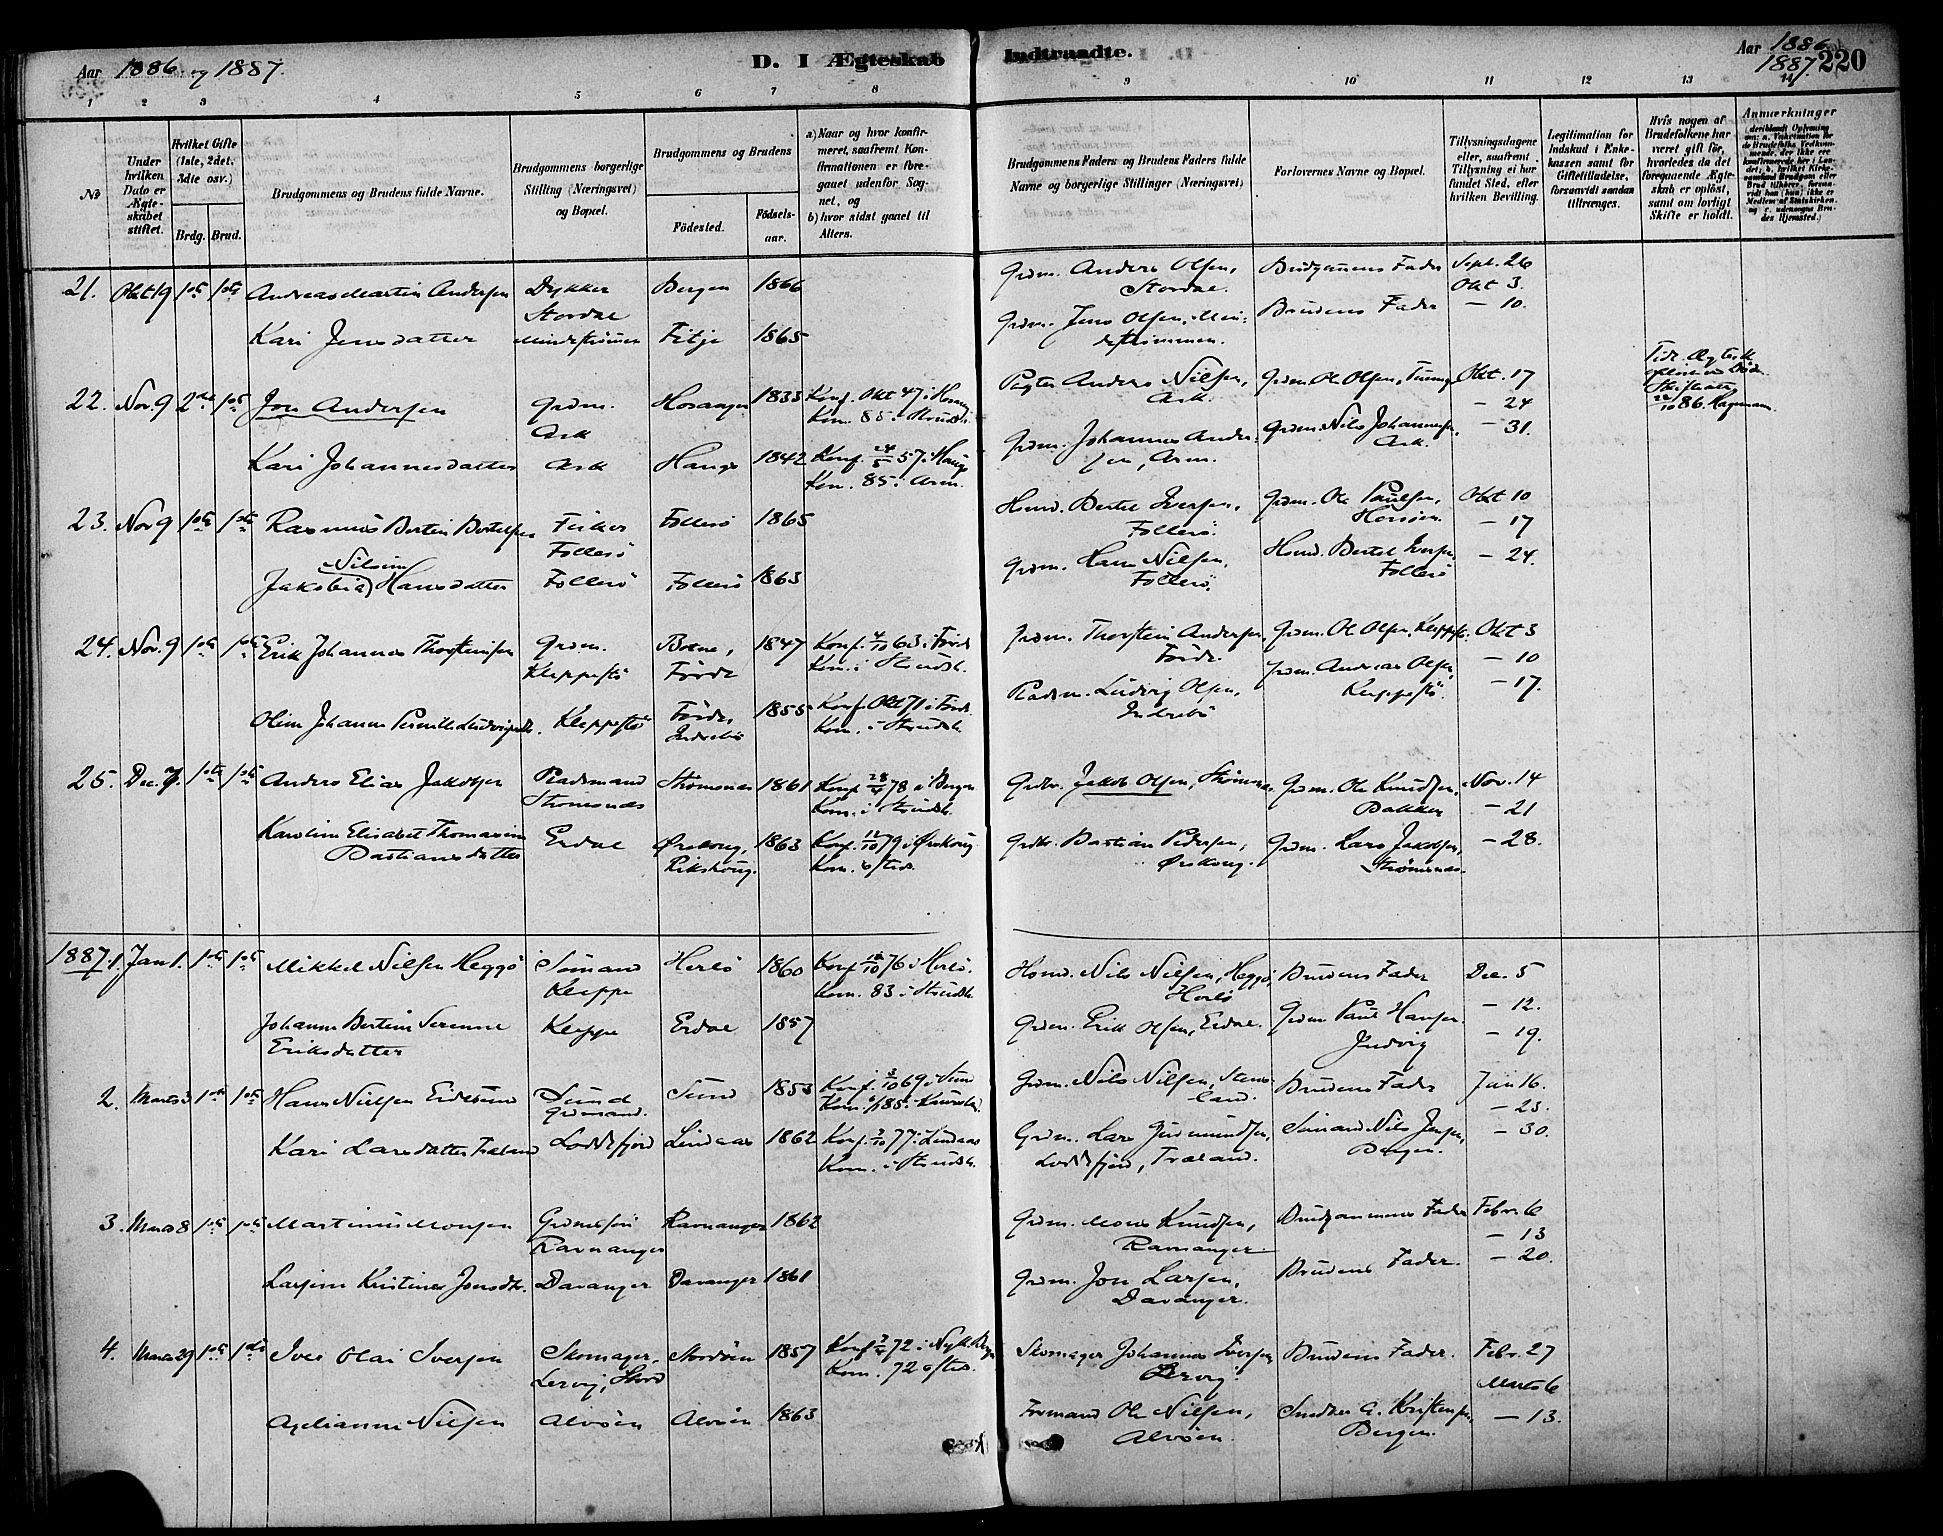 Aar 1886 og 1887.
D. I Ægteskab Indtraadte.
Aar 1886
1887. 220
1 2 3 4 5 6 7 8 9 10 11 12 13 14
No
Under hvilken Dato er Ægteskabet stiftet.
Hvilket Gifte (1ste, 2det, 3die osv.)
Brdg. Brud.
Brudgommens og Brudens fulde Navne.
Brudgommens borgerlige Stilling (Næringsvei) og Bopæl.
Brudgommens og Brudens
Fødested. Fødselsaar.
a) Naar og hvor konfirmeret, saafremt Konfirmationen er foregaaet udenfor Sognet, og
b) hvor sidst gaaet til Alters.
Brudgommens Faders og Brudens Faders fulde Navne og borgerlige Stillinger (Næringsvei)
Forlovernes Navne og Bopæl.
Tillysningsdagene eller, saafremt Tillysning ei har fundet Sted, efter hvilken Bevilling.
Legitimation for Indskud i Enkekassen samt for Giftetilladelse, forsaavidt saadan tiltrænges.
Hvis nogen af Brudefolkene har været gift før, hvorledes da det foregaaende Ægteskab er opløst, samt om lovligt Skifte er holdt.
Anmærkninger
21. Okt 19 1ste 1ste Andreas Martin Andersen Dykker Bergen 1866 Grdm. Anders Olsen, Brudgommens Fader Sept. 26
Stordal Stordal. Okt 3
Kari Jensdatter Mindestrømmen Fitje 1865 Grdm. Jens Olsen, Min- Brudens Fader — 10.
destrømmen.
22. Nov. 9 2det 1ste Jon Andersen Grdm. Hosanger 1833 Konf. Okt 47 i Hosang Anders Nilsen, Grdm. Ole Olsen, Okt. 17
Ask Kom. 85 i Strudsh. Ask — 24
Kari Johannesdatter Ask Haugs 1842 Konf. 24/5 57 i Haugs Grdm. Johannes Ander- Grdm. Nils Johannesen — 31.
Kom. 85 i Arm. sen, Arm. Ask.
Tidl. Ægtesk. opløst ved Død.
86. Hagemann.
23. Nov 9 1ste 1ste Rasmus Bertin Bertelsen Fisker Follesø 1865 Husmd. Bertel Iversen, Grdm. Ole Paulsen, Okt 10
Follesø Follesø. Horsøen — 17
Nilsine
Jakobia) Hansdatter Follesø Follesø 1863 Grdm. Hans Nilsen, Husmd. Bertel Iversen — 24.
Follesø. Follesø
24. Nov. 9 1ste 1ste Erik Johannes Thorsteinsen Grdm. 1847 Konf. 4/10 63 i Førde Grdm. Thorstein Andersen, Grdm. Ole Olsen, Kleppestø. Okt 3
Kleppestø Førde Kom. i Strudsh. Førde. Grdm. Andreas Olsen — 10
Oline Johanne Pernille Ludvigsdtr. Kleppestø Førde, 1855 Konf. Okt 71 i Førde Ludvig Olsen, Kleppestø. — 17.
Indrebø Kom. i Strudsh. Indrebø
25. Dec. 7. 1ste 1ste Anders Elias Jakobsen Pladsmand Strømsnes 1861 Konf. 78 i Bergen Grdbr. Jakob Olsen, Strømsnes Grdm. Ole Knudsen, Nov. 14
Strømsnes Kom. i Strudsh. Bakken — 21
Karoline Elisabet Thomasine Erdal Ørskoug, 1863 Konf. 12/10 79 i Ørskoug Grdbr. Bastian Pedersen, Grdm. Lars Jakobsen, — 28.
Bastiansdatter Rikskoug. Kom. ofteds. Ørskoug. Strømsnes.
1887. 1. Jan 1. 1ste 1ste Mikkel Nilsen Heggø Sømand Herlø 1860 Konf. 76 i Herlø. Husmd. Nils Nilsen, Heggø, Brudens Fader Dec. 5
Kleppe Kom. 83 i Strudsh. Herlø — 12.
Johanne Bertine Serenne Kleppe Erdal 1857 Grdm. Erik Olsen, Erdal. Grdm Paul Hansen — 19.
Eriksdatter
2. Marts 3 1ste 1ste Hans Nilsen Eidesund Sund Sund 1853 Konf. 3/10 69 i Sund Grdm. Nils Nilsen, Brudens Fader Jan 16.
Grdmand. — 23.
Kari Larsdatter Træland Loddefjord Lindaas 1862 Konf. 77 i Lindaas Grdm. Lars Gudmundsen, Sømand Nils Jensen, — 30.
Kom. i Strudsh. Loddefjord, Træland. Bergen.
3. Marts 8 1ste 1ste Martinus Monsen Grdmssøn Ravnanger 1862 Grdm. Mons Knudsen, Brudgommens Fader Febr. 6
Ravnanger Ravnanger — 13
Larsine Kristine Jonsdtr. Davanger Davanger 1861 Grdm. Jon Larsen, Brudens Fader. — 20.
Davanger.
4. Marts 29 1ste 1ste Iver Olai Iversen Skomager, Stordøen 1857 Konf. 72 i Nykk. Bergen Skomager Johannes Iversen Brudens Fader. Febr. 27
Lervig, Stord Kom. 72 ofteds. Lervig. Marts 6
Axelianne Nilsen Alvøen Alvøen 1863 Formand Ole Nilsen, Snedker A. Kristensen, — 13.
Alvøen. Bergen.